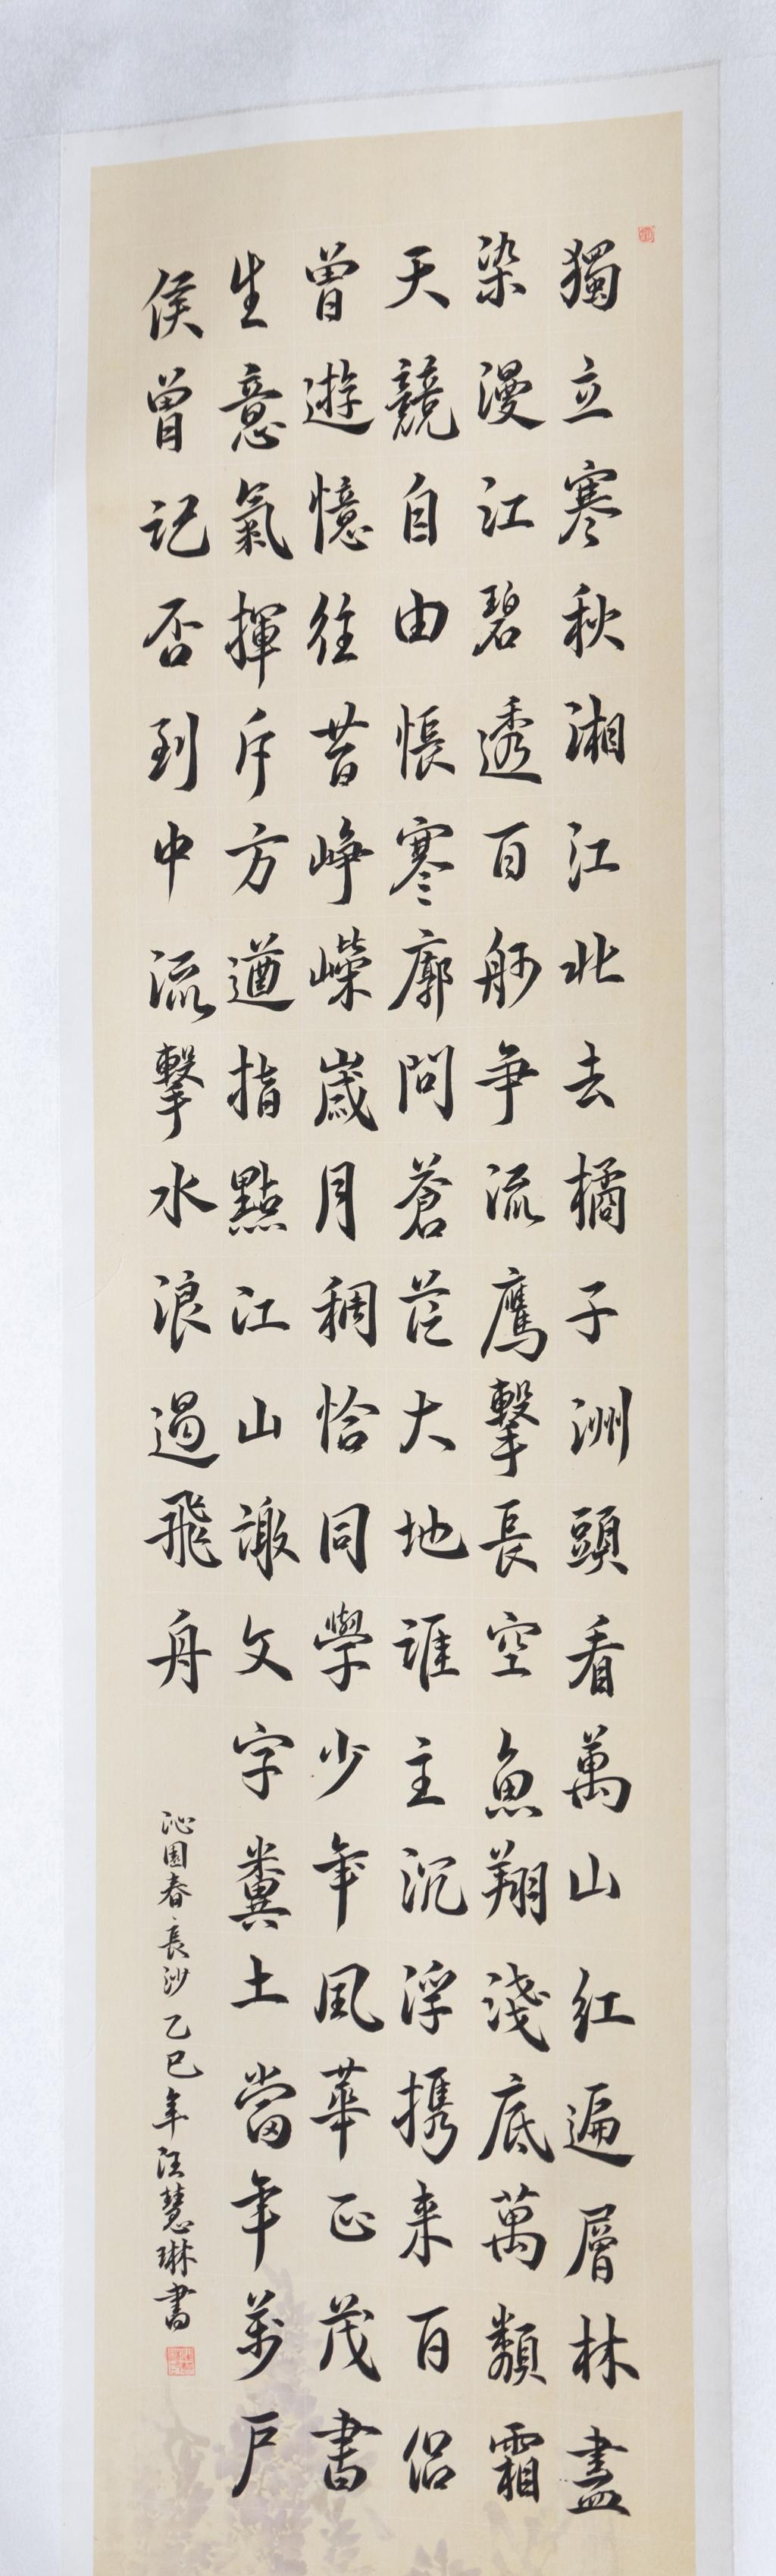 獨立寒秋湘江北去橘子洲頭看萬山紅遍層林盡
染漫江碧透百舸爭流鷹擊長空魚翔淺底萬類霜
天競自由悵寥廓問蒼茫大地誰主沉浮攜來百侶
曾遊憶往昔崢嶸歲月稠恰同學少年風華正茂書
生意氣揮斥方遒指點江山激文字糞土當年萬戶
侯曾記否到中流擊水浪遏飛舟
沁園春長沙乙巳年汪慧琳書